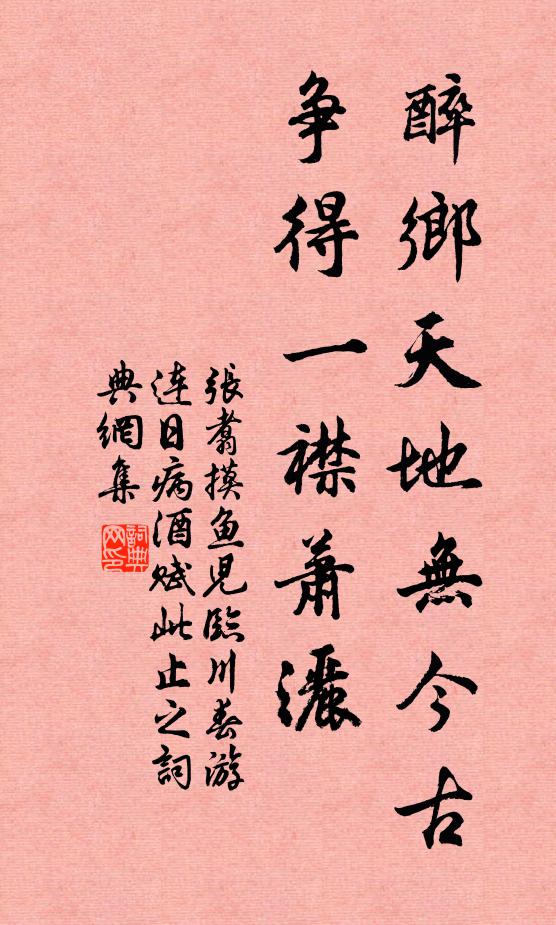 醉鄉天地無今古
争得一襟蕭灑
張翥摸鱼児臨川春游
连日病酒赋此止之詞
典網集
詞典网印